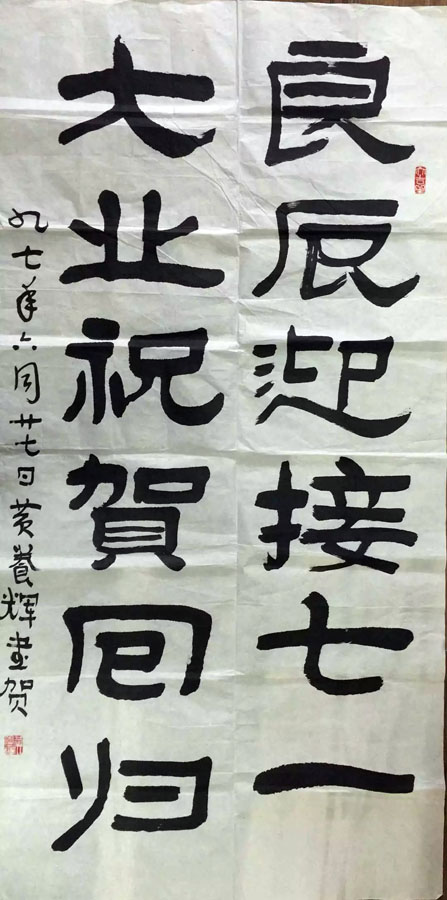 良辰迎接七一
大业祝賀回归
九七年六月廿七日黄养辉書贺